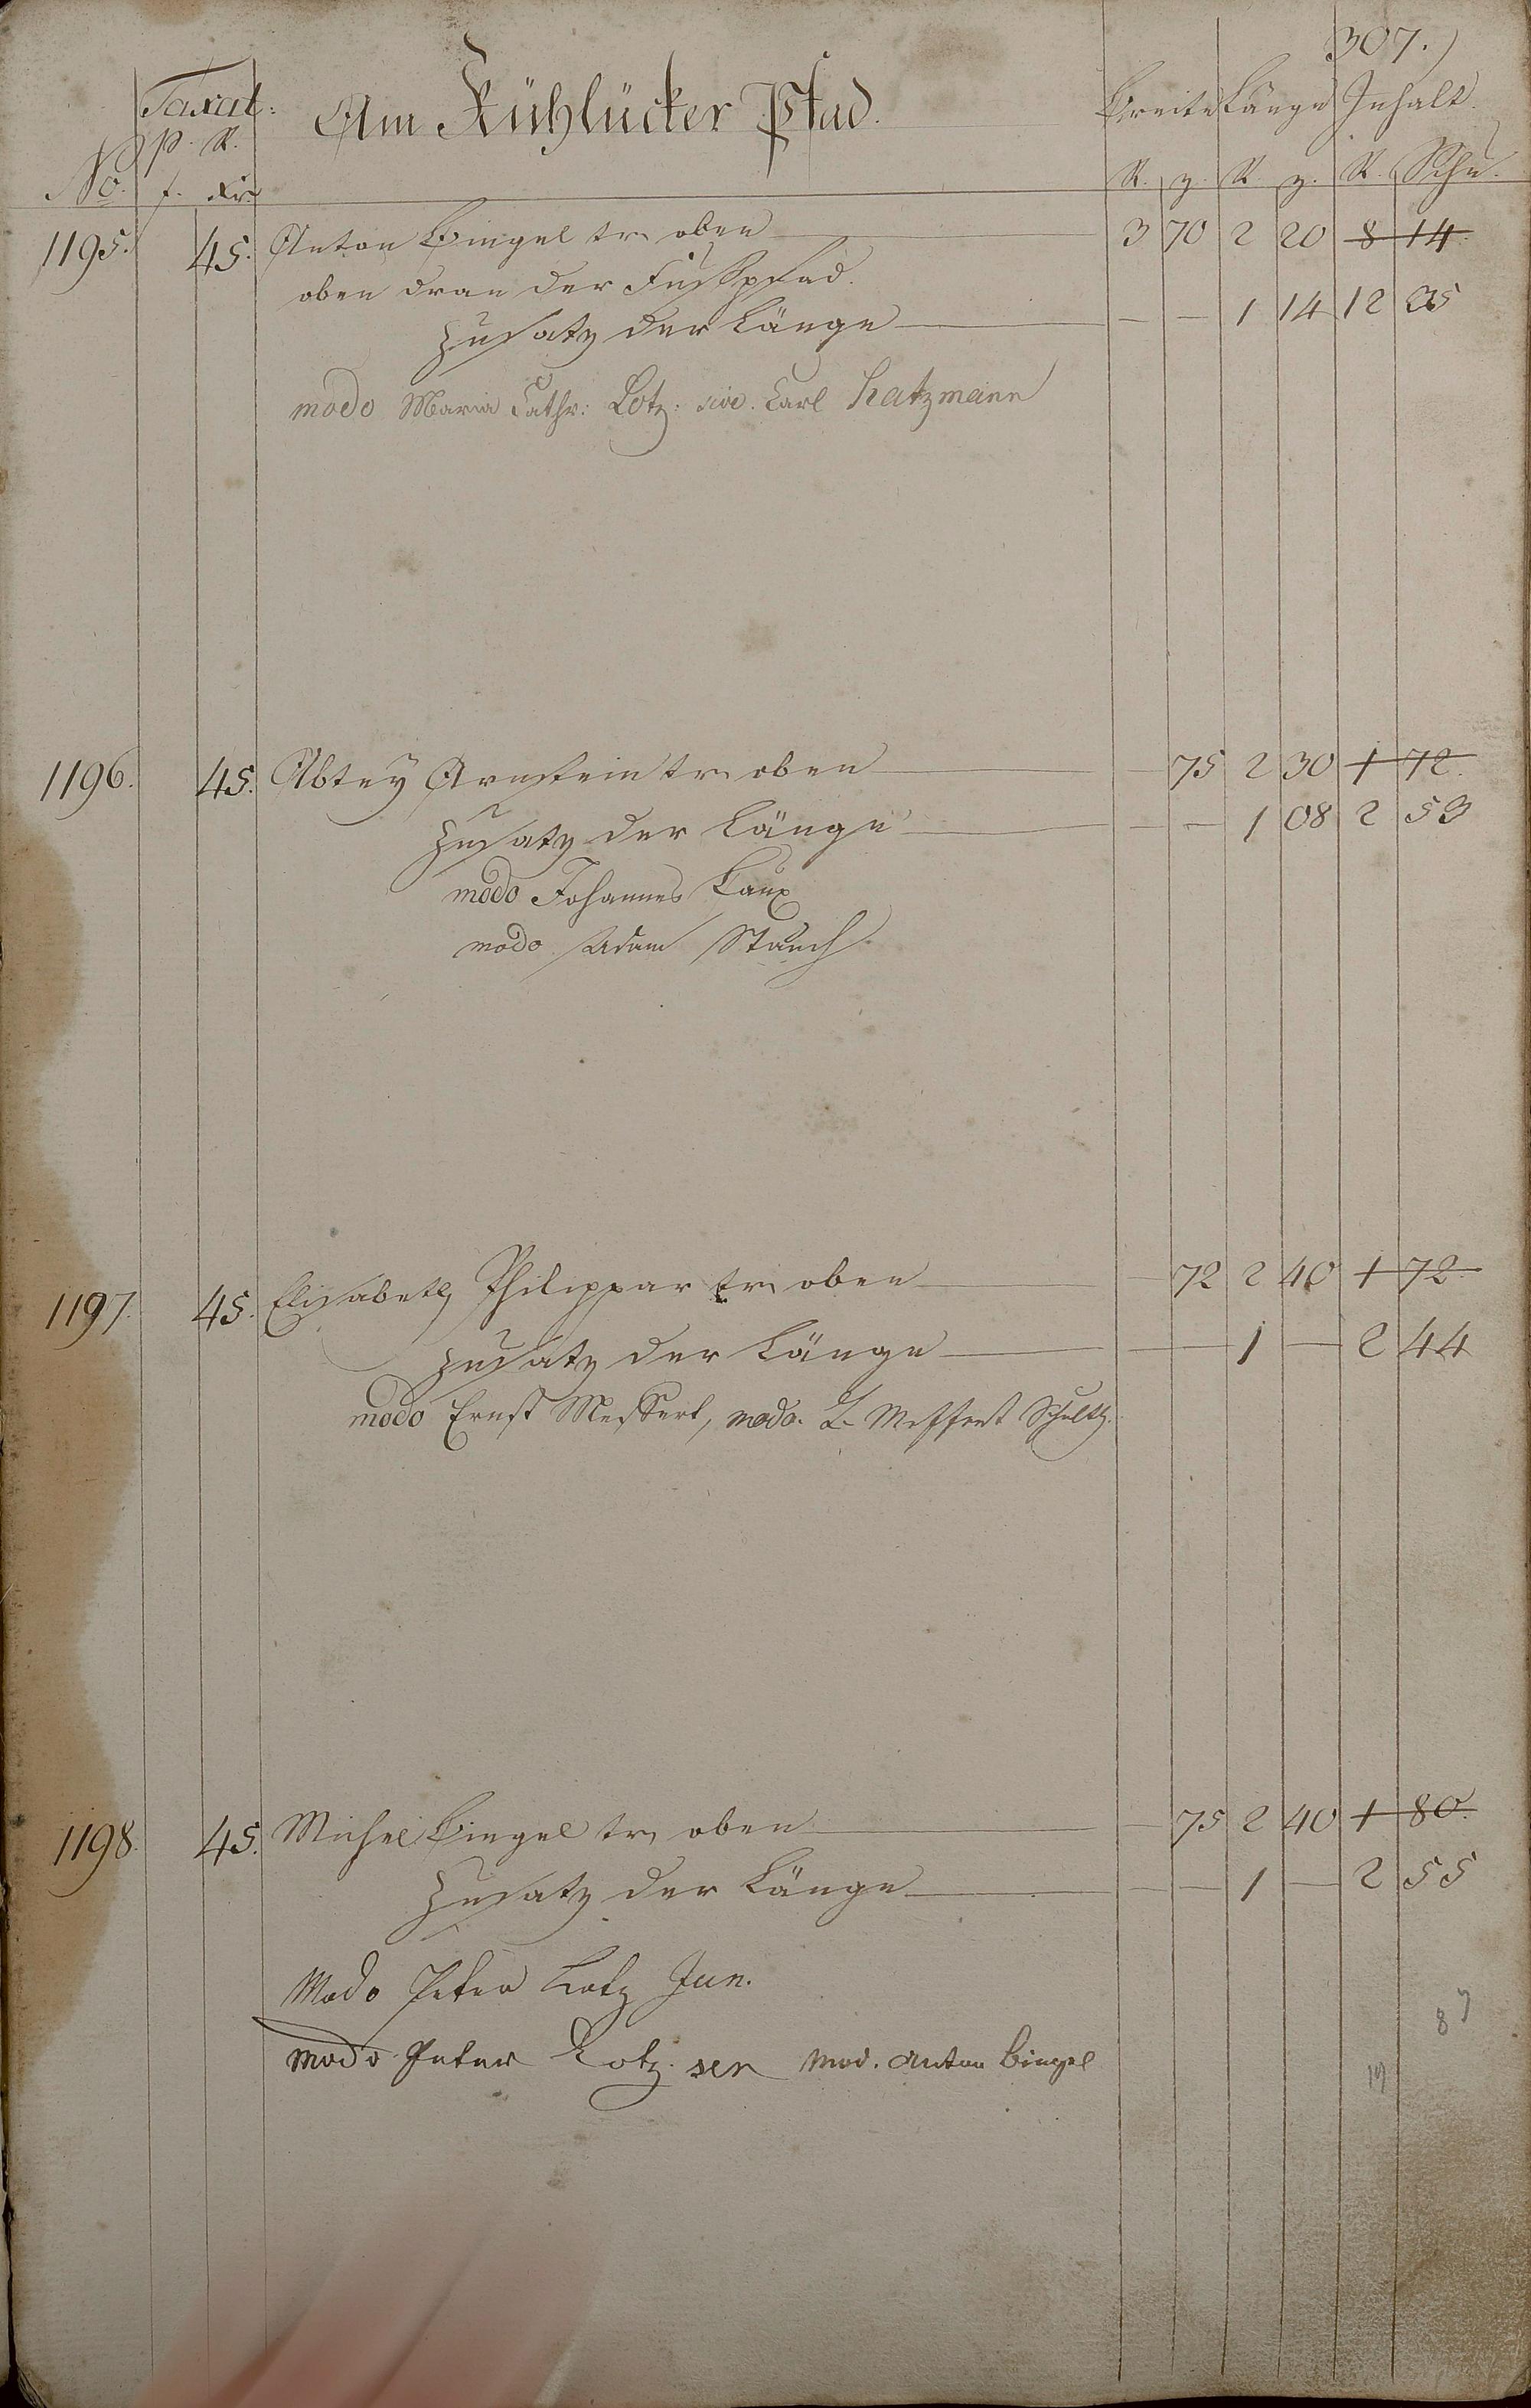 307.)
Taxat: Am Kühlücker Pfad. Breite Länge Inhalt.
No. p. R. f. Kr. R. z. R. z. R. Schu.
1195. 45. Anton Bingel tr. oben 3 70 2 20 8 14.
oben dran der Fußpfad.
Zusatz der Länge — — 1 14 12 35
modo Maria Cathr: Lotz: Carl Hatzmann
1196. 45. Abtey Arnstein tr. oben 75 2 30 1 72.
Zusatz der Länge — — 1 08 2 53
modo Johannes Laux
modo Adam Stauch.
1197. 45. Elisabeth Philippar tr. oben 72 2 40 1 72.
Zusatz der Länge 1 — 2 44
modo Ernst Meffert, modo. L. Meffert Schultz.
1198. 45. Michel Bingel tr. oben 75 2 40 1 80.
Zusatz der Länge — — 1 — 2 55
Modo Peter Lotz Jun.
modo Peter Lotz. sen mod. Anton Bingel